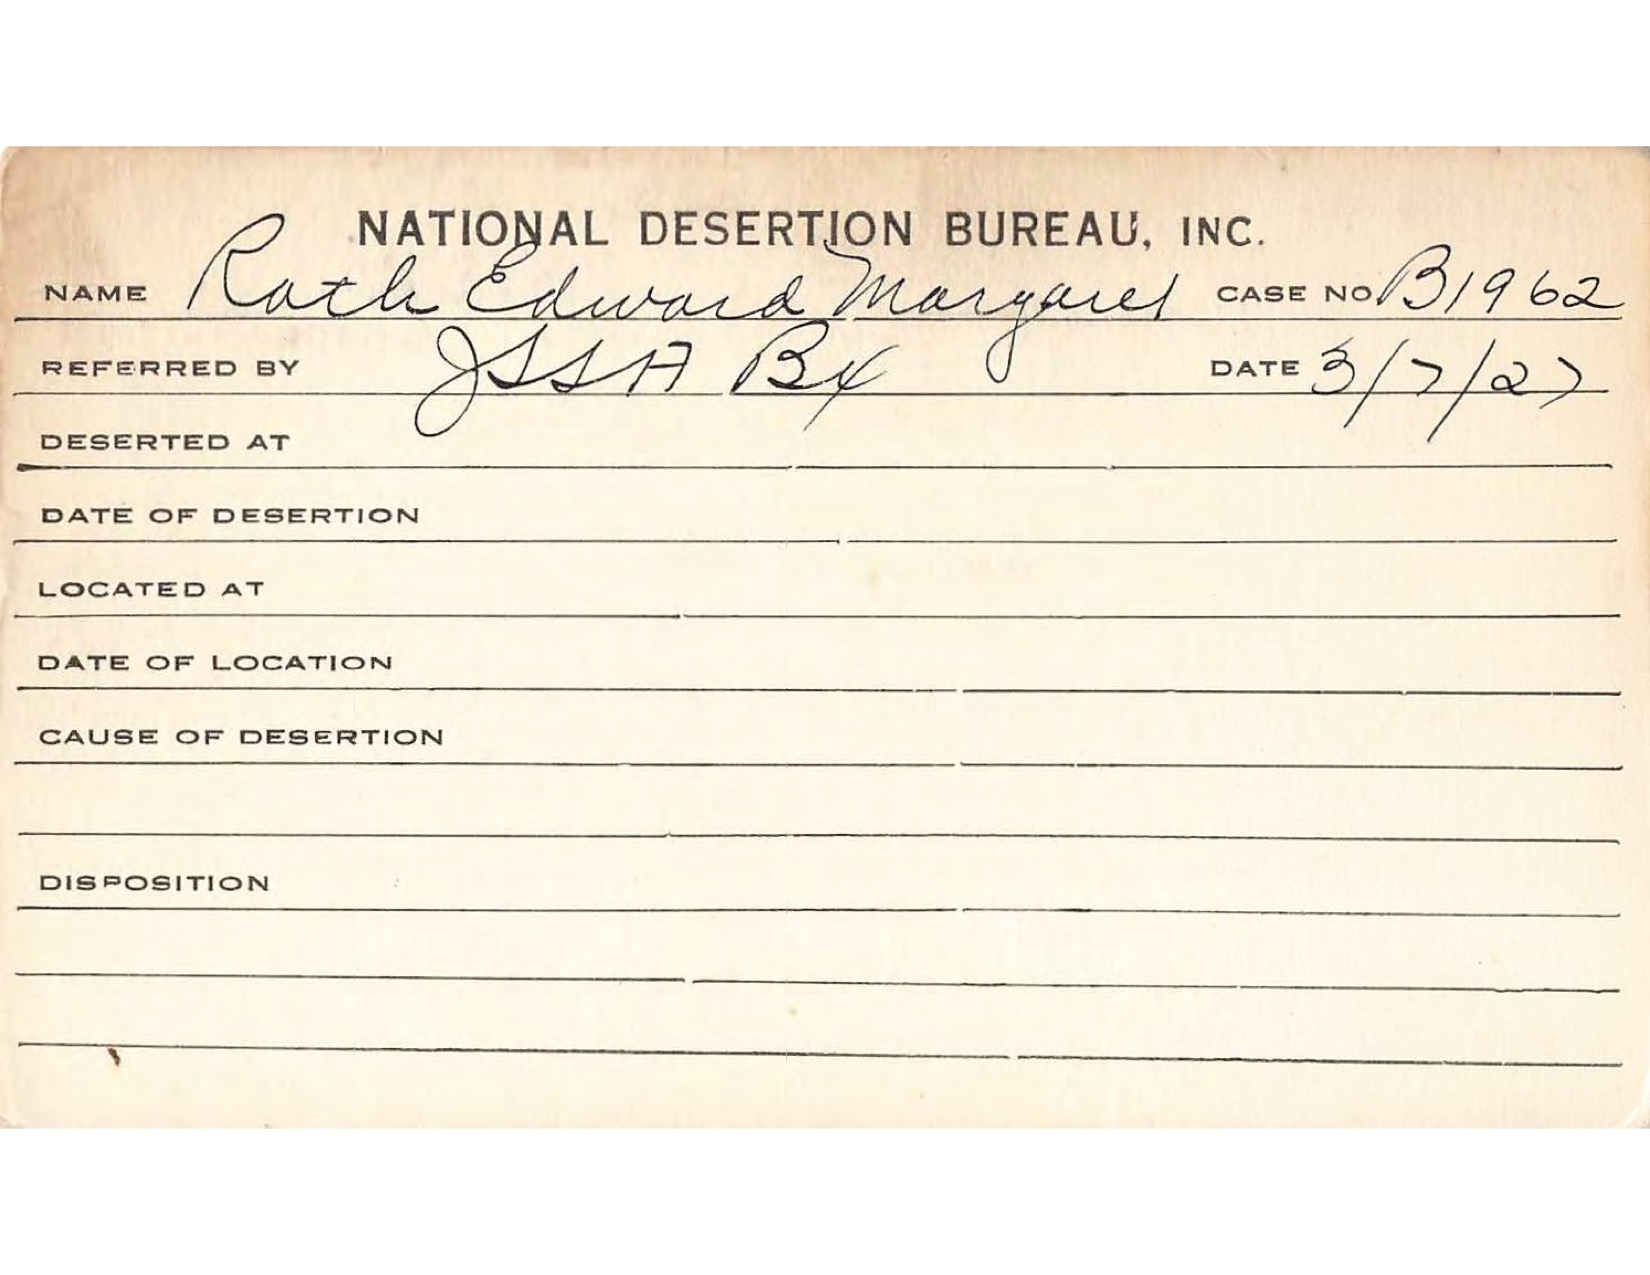 NATIONAL DESERTION BUREAU, INC.
NAME Roth Edward Margaret CASE NO. B1962
REFERRED BY JSSA Bx DATE 3/7/27
DESERTED AT
DATE OF DESERTION
LOCATED AT
DATE OF LOCATION
CAUSE OF DESERTION
DISPOSITION